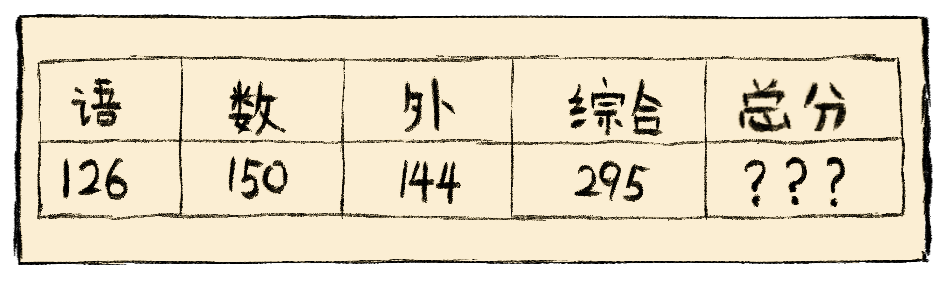 语 数 外 综合 总分
126 150 144 295 ???